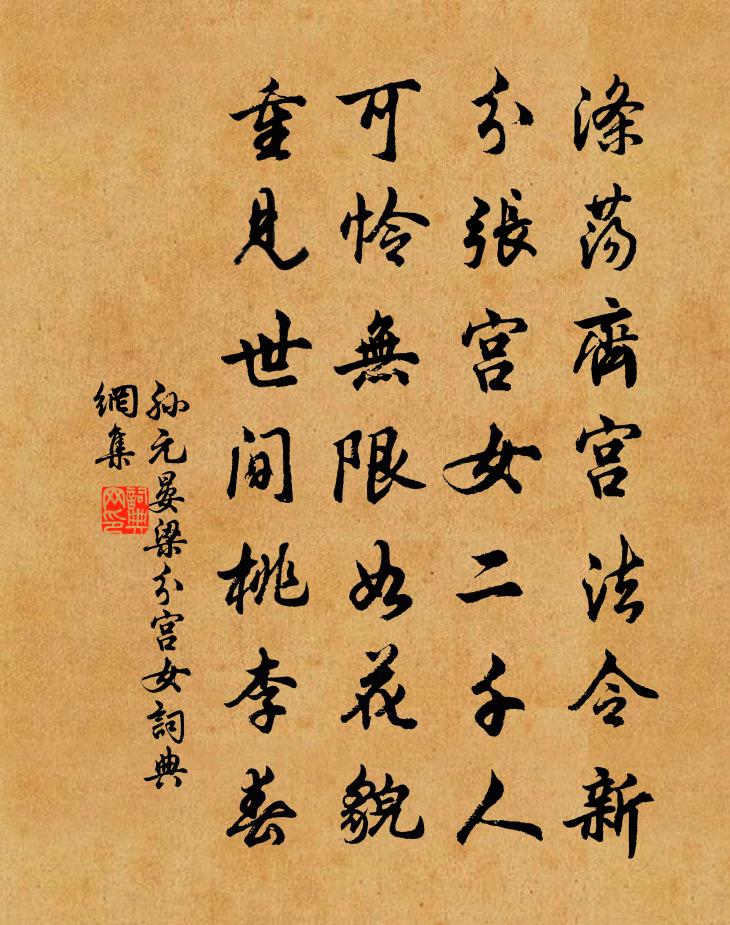 滌蕩齊宮法令新
分張宮女二千人
可憐無限如花貌
重見世間桃李春
孫元晏梁分宮女詞典
網集
詞典
網印